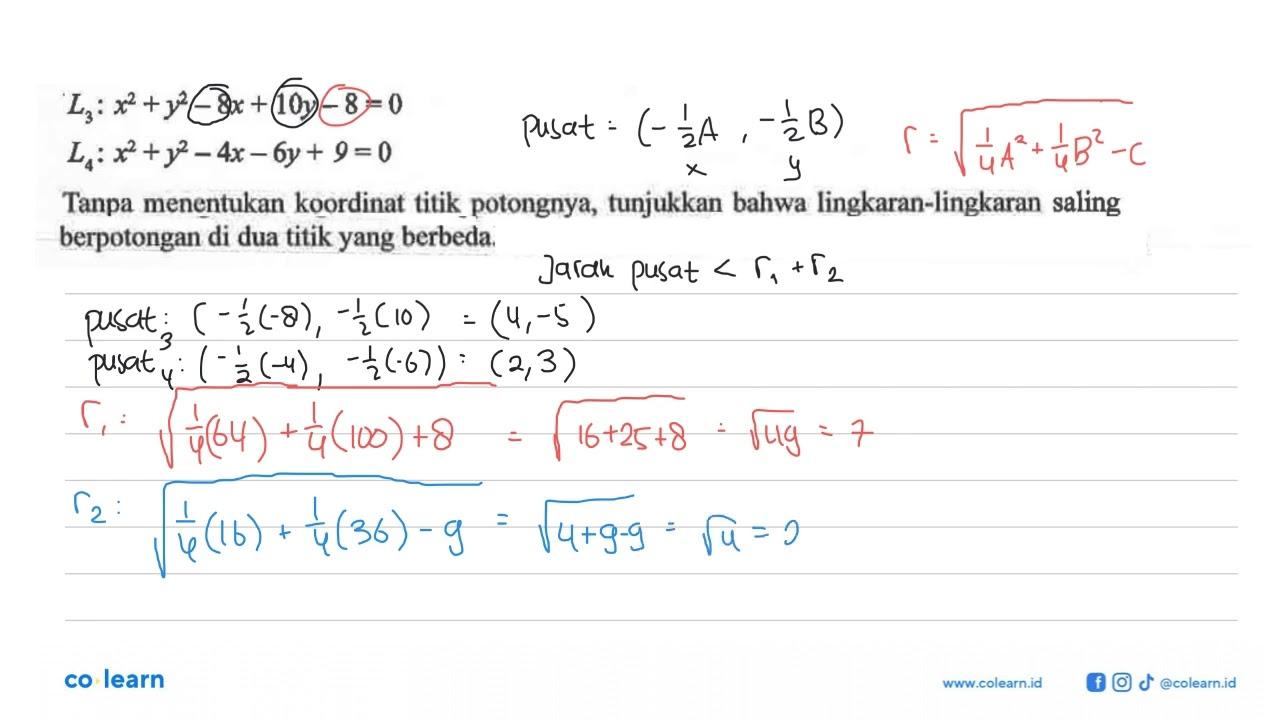 L₃ : x² + y² – 8x + 10y – 8 = 0
L₄ : x² + y² – 4x – 6y + 9 = 0
pusat = (-1/2 A , -1/2 B)
x y
r = √(1/4 A² + 1/4 B² - C
Tanpa menentukan koordinat titik potongnya, tunjukkan bahwa lingkaran-lingkaran saling
berpotongan di dua titik yang berbeda.
Jarak pusat < r₁ + r₂
pusat₃ : (-1/2(-8), -1/2(10) = (4,-5)
pusat₄ : (-1/2(-4), -1/2(-6)) = (2,3)
r₁ = √(1/4(64) + 1/4(100) + 8 = √16+25+8 = √49 = 7
r₂ : √(1/4(16) + 1/4(36) - 9 = √4+9-9 = √4 = 2
co learn
www.colearn.id @colearn.id